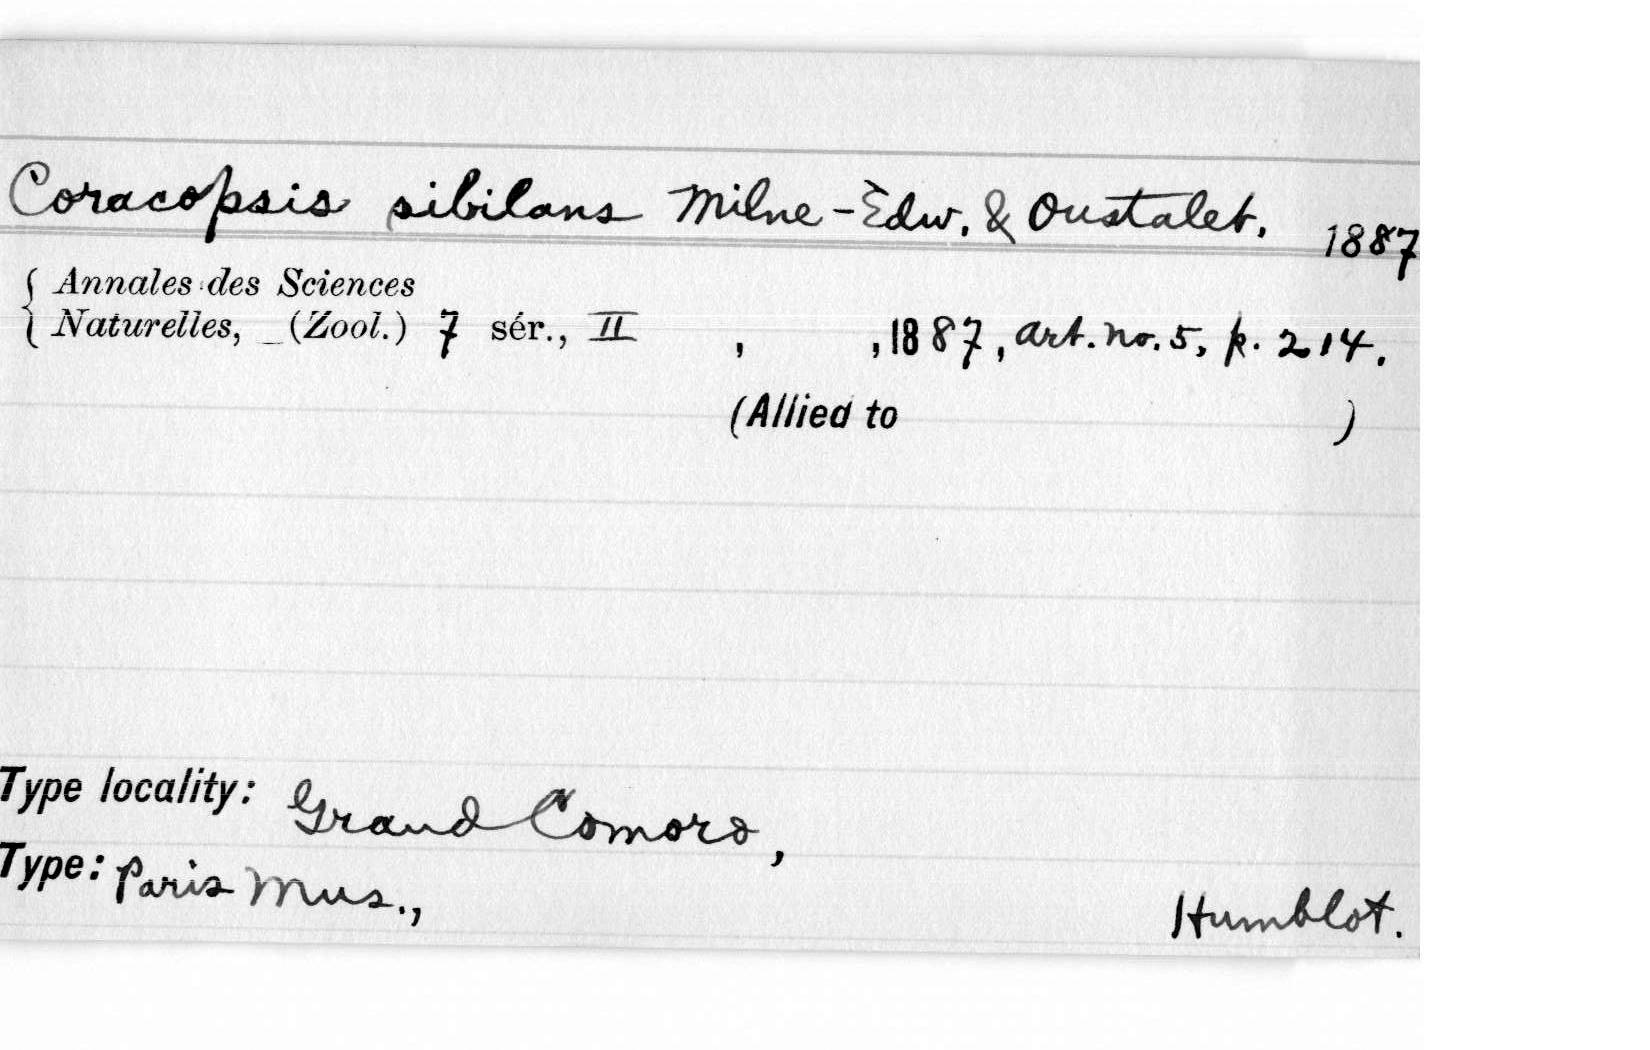 Coracopsis sibilans Milne-Edw. & Oustalet. 1887
Annales des Sciences
Naturelles, (Zool.) 7 sér., II , , 1887, art. no. 5, p. 214.
(Allied to )
Type locality: Grand Comoro,
Type: Paris Mus., Humblot.